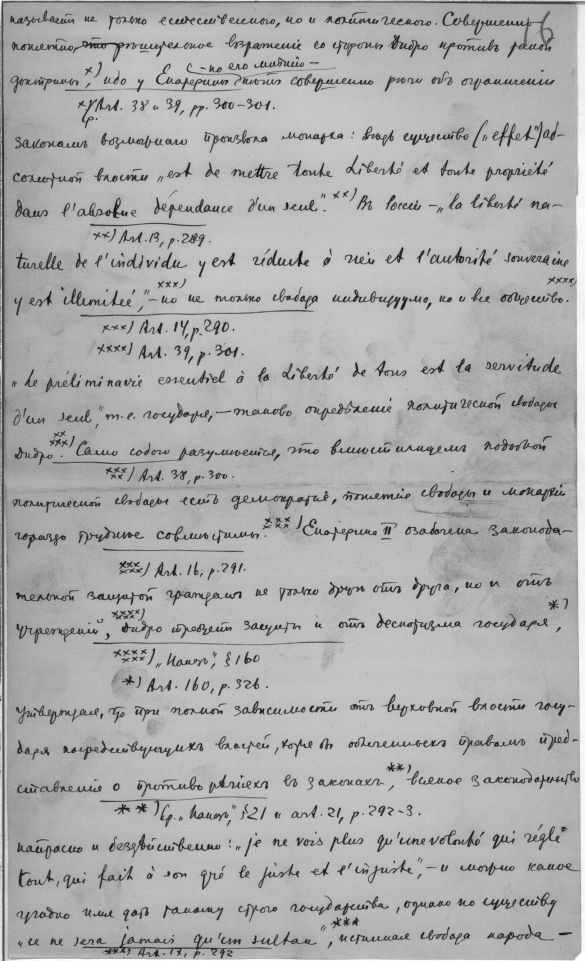 16
называетъ не только естественного, но и политического. Совершенно
понятно, что рѣшительное возраженіе со стороны Дидро противъ такой
доктрины, х) ибо у Екатерины совершенно рѣчи объ ограниченіи
с – по его мнѣнію –
х) Ср. Art. 38 и 39, pp. 300-301.
закономъ возможнаго произвола монарха: вѣдь существо („effet") аб-
солютной власти „est de mettre toute liberté et toute propriété
dans l'absolue dépendance d'un seul." хх) Въ Россіи – „la liberté na-
хх) Art. 13, p. 289.
turelle de l'individu y est réduite à rien et l'autorité souveraine
y est illimitée", ххх) – но не только свобода индивидуума, но и все общество. хххх)
ххх) Art. 14, p. 290.
хххх) Art. 39, p. 301.
„Le préliminaire essentiel à la liberté de tous est la servitude
d'un seul", т.е. государя, – таково опредѣленіе политической свободы
Дидро. ххххх) Само собою разумѣется, что вмѣстилищемъ подобной
ххххх) Art. 38, p. 300.
политической свободы есть демократія, понятія свободы и монархіи
гораздо труднѣе совмѣстимы. хххххх) Екатерина II озабочена законода-
хххххх) Art. 16, p. 291.
тельной защитой гражданъ не только другъ отъ друга, но и отъ
учрежденій, ххххххх) Дидро требуетъ защиты и отъ деспотизма государя, *)
ххххххх) „Наказъ", § 160
*) Art. 160, p. 326.
утверждая, что при полной зависимости отъ верховной власти госу-
даря посредствующихъ властей, хотя бы облеченныхъ правомъ пред-
ставленія о противорѣчіяхъ въ законахъ, **) всякое законодательство
**) Ср. „Наказъ", § 21 и art. 21, p. 292-3.
напрасно и бездѣйственно: „je ne vois plus qu'une volonté qui règle
tout, qui fait à son gré le juste et l'injuste", – и можно какое
угодно имя дать такому строю государства, однако по существу
„ce ne sera jamais qu'un sultan", *** истинная свобода народа –
***) Art. 17, p. 292